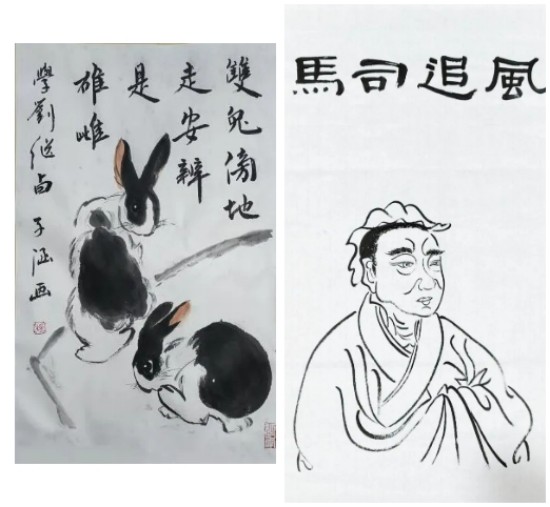 雙兔傍地
走安辨
是
雄雌
學劉继卣 子涵画
風追司馬